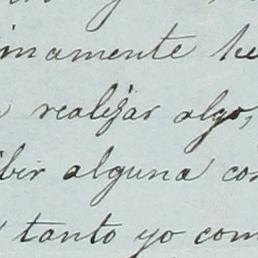 inamente he
realizar algo,
ibir alguna co
tanto yo com